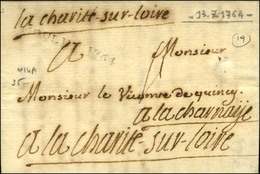 la charité-sur-loire
13-7-1764
19
A Monsieur
Monsieur le Vicomte de quincy
a la charnaÿe
a la charité-sur-loire